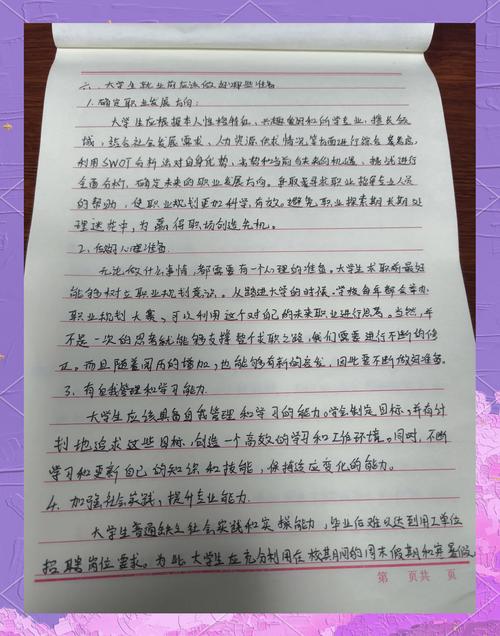 六、大学生就业前应该做好哪些准备
1. 确定职业发展方向:
大学生应根据本人性格特征、兴趣爱好和所学专业,擅长领
域,结合社会发展需求、人力资源供求情况等方面进行综合考虑,
利用SWOT分析法对自身优势、劣势和当前与未来的机遇、挑战进行
全面分析,确定未来的职业发展方向。争取去寻求职业指导专业人员
的帮助,使职业规划更加科学、有效。避免职业探索期长期处
理迷茫中,为赢得职场创造先机。
2. 做好心理准备.
无论做什么事情,都需要有一个心理的准备。大学生求职前最好
能够树立职业规划意识。从踏进大学的时候,学校每年都会举办
职业规划大赛,可以利用这个对自己的未来职业进行思考。当然,并
不是一次的思考就能够支撑整个求职之路,我们需要进行不断的修
正。而且随着阅历的增加,也能够有新的启发,因此要不断做好准备。
3. 有自我管理和学习能力.
大学生应该具备自我管理和学习的能力。学会制定目标,并有计
划地追求这些目标,创造一个高效的学习和工作环境。同时,不断
学习和更新自己的知识和技能,保持适应变化的能力。
4. 加强社会实践,提升专业能力.
大学生普遍缺乏社会实践和实操能力,毕业后难以达到用工单位
招聘岗位要求。为此大学生应充分利用在校期间的周末假期和寒暑假
第 页共 页